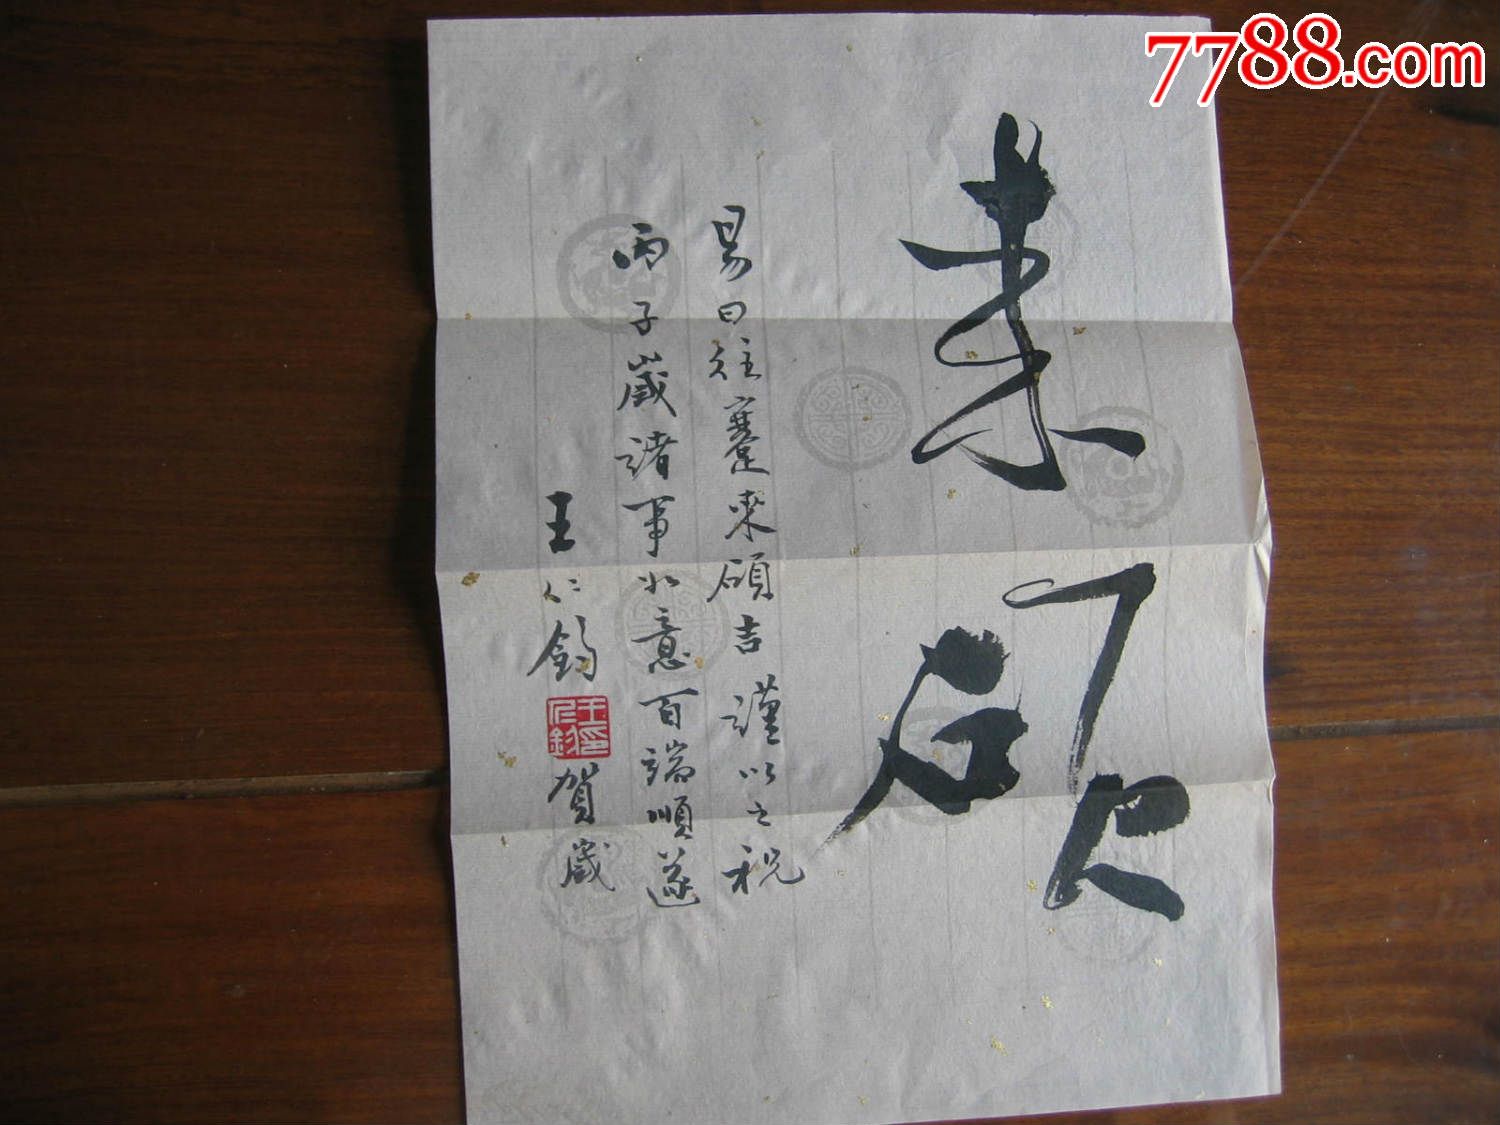 来硕
易曰往蹇來碩吉謹以之祝
丙子歲諸事如意百端順遂
王仁鈞
王仁鈞印
賀歲
7788.com